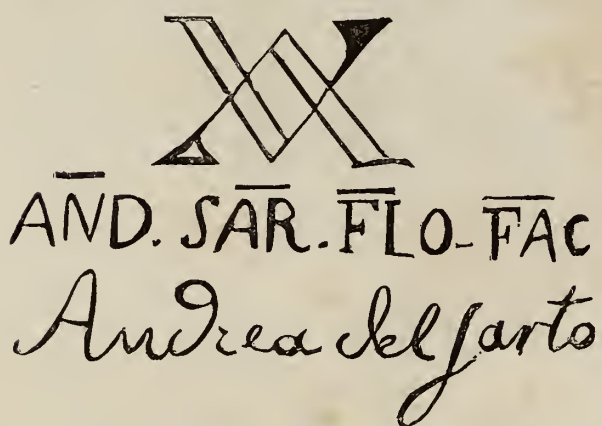 AND. SAR. FLO- FAC
Andrea del Sarto